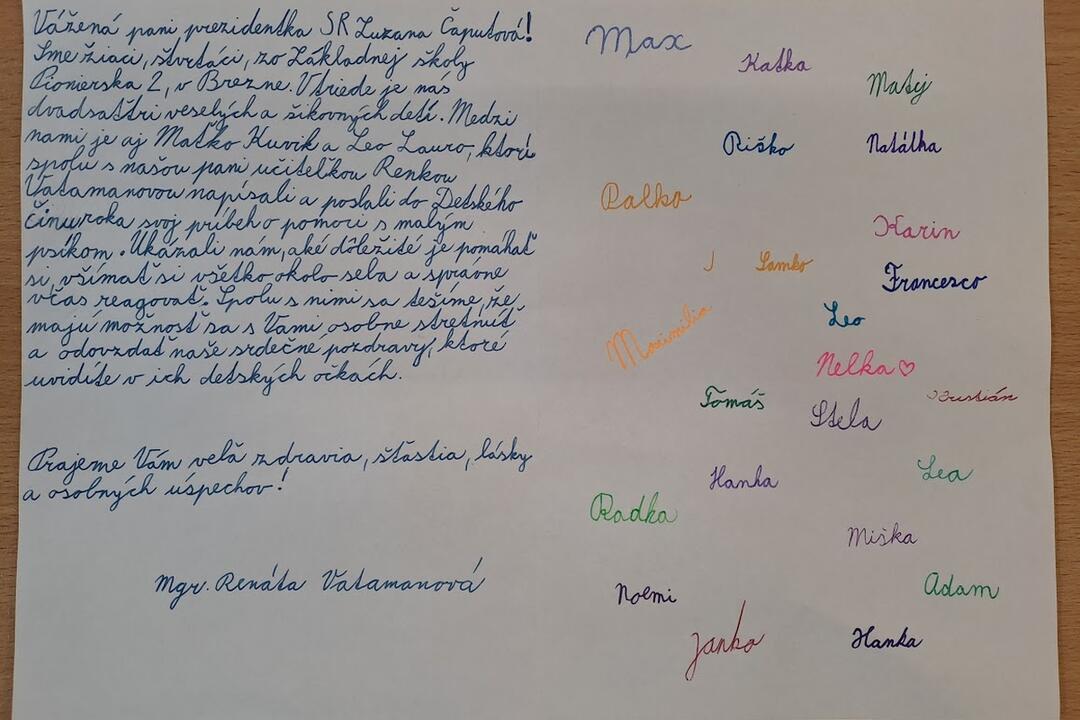 Vážená pani prezidentka SR Zuzana Čaputová!
Sme žiaci, štvrtáci, zo Základnej školy
Pionierska 2, v Brezne. V triede je nás
dvadsaťtri veselých a šikovných detí. Medzi
nami je aj Maťko Kuvik a Leo Lauro, ktorí
spolu s našou pani učiteľkou Renkou
Vatamanovou napísali a poslali do Detského
činu roka svoj príbeh o pomoci s malým
psíkom. Ukázali nám, aké dôležité je pomáhať
si, všímať si všetko okolo seba a správne
včas reagovať. Spolu s nimi sa tešíme, že
majú možnosť sa s Vami osobne stretnúť
a odovzdať naše srdečné pozdravy, ktoré
uvidíte v ich detských očkách.
Prajeme Vám veľa zdravia, šťastia, lásky
a osobných úspechov!
Mgr. Renáta Vatamanová
Max
Katka
Matij
Riško
Natálka
Palko
Karin
Samko
Francesco
Leo
Maximilia
Nelka♡
Tomáš
Stela
Hanka
Lea
Radka
Miška
Noemi
Adam
Janko
Hanka